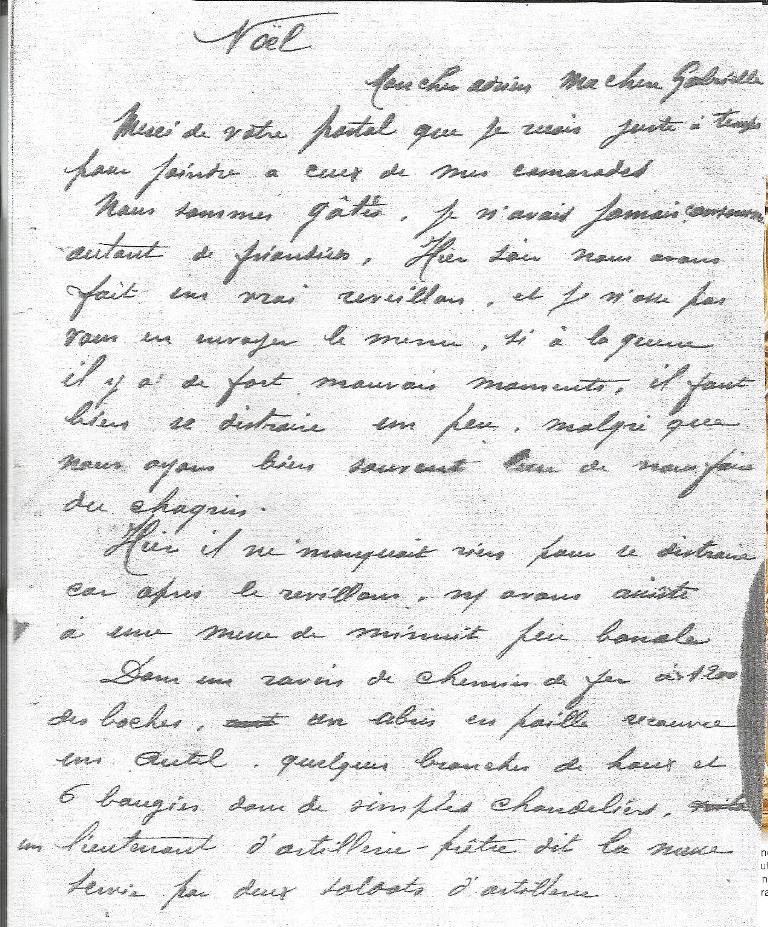 Noël
Mon cher adrien Ma chere Gabrielle
Merci de votre postal que je recois juste à temps
pour joindre a ceux de mes camarades
Nous sommes gâtés, je n'avais jamais consommé
autant de friandises, Hier soir nous avons
fait un vrai reveillon, et je n'ose pas
vous en envoyer le menu, si à la guerre
il y a de fort mauvais moments, il faut
bien se distraire un peu, malgré que
nous ayons bien souvent de nous faire
du chagrin.
Hier il ne manquait rien pour se distraire
car apres le reveillon, ns avons assisté
à une messe de minuit peu banale
Dans un ravin de chemin de fer à 1200
des boches, un abris en paille recouvre
un autel, quelques branches de houx et
6 bougies dans de simples chandeliers,
un lieutenant d'artillerie-prêtre dit la messe
servie par deux soldats d'artillerie